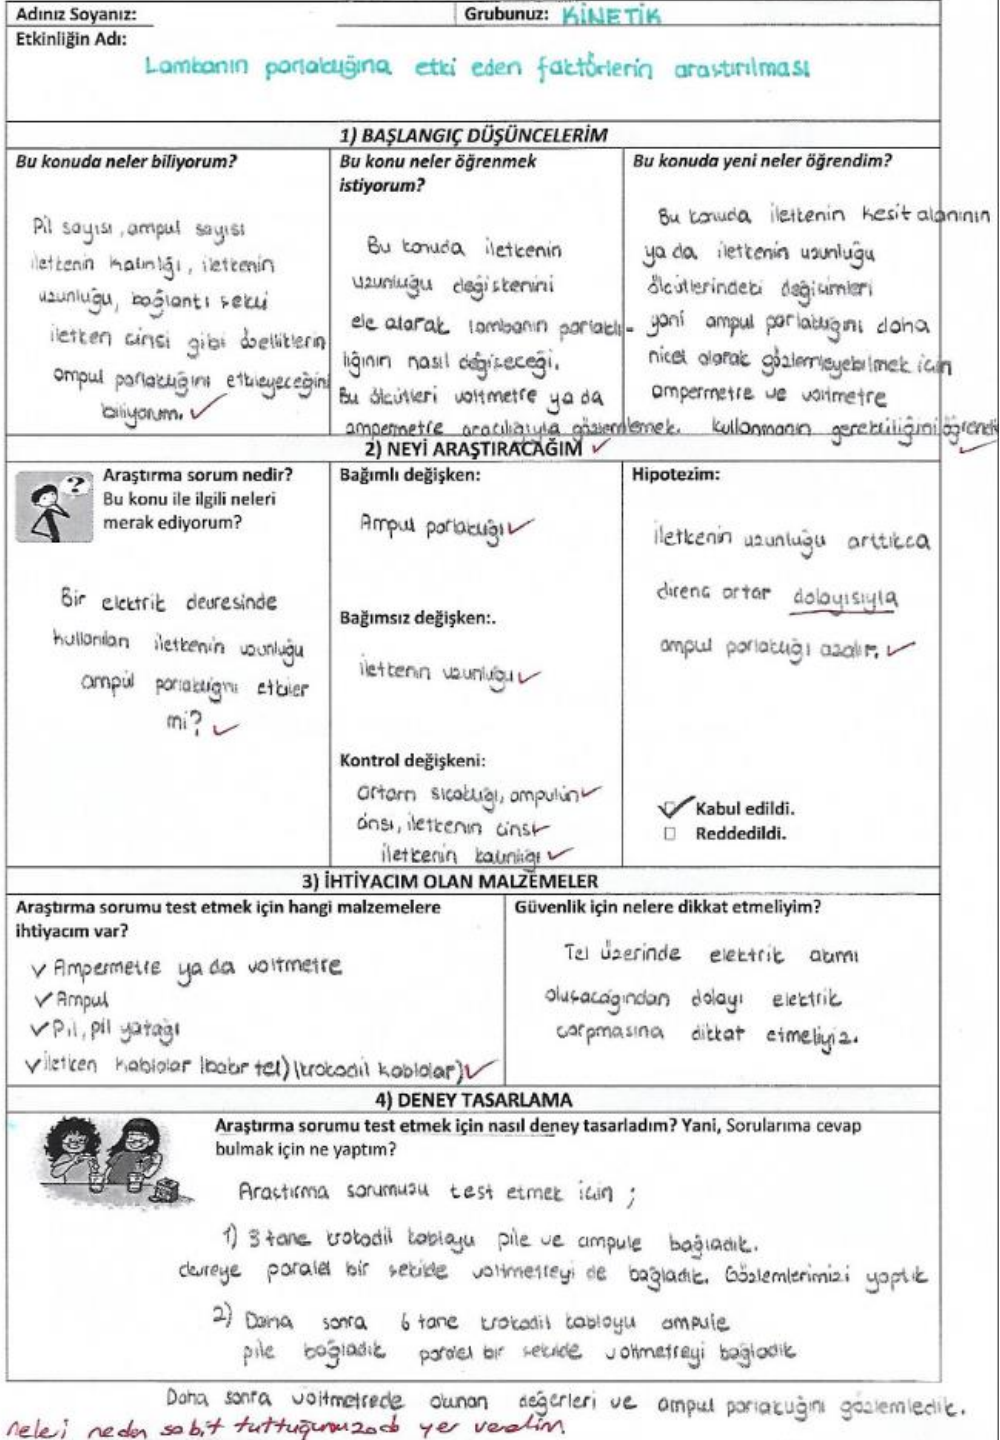 Adınız Soyanız:
Grubunuz: KİNETİK
Etkinliğin Adı:
Lambanın parlaklığına etki eden faktörlerin araştırılması
1) BAŞLANGIÇ DÜŞÜNCELERİM
Bu konuda neler biliyorum?
Pil sayısı, ampul sayısı
iletkenin kalınlığı, iletkenin
uzunluğu, bağlantı şekli
iletken cinsi gibi özelliklerin
ampul parlaklığını etkileyeceğini
biliyorum.
Bu konu neler öğrenmek
istiyorum?
Bu konuda iletkenin
uzunluğu değişkenini
ele alarak lambanın parlaklı-
lığının nasıl değişeceği.
Bu ölçütleri voltmetre ya da
ampermetre aracılığıyla gözlemlemek.
Bu konuda yeni neler öğrendim?
Bu konuda iletkenin kesit alanının
ya da iletkenin uzunluğu
ölçütlerindeki değişimleri
yani ampul parlaklığını daha
nicel olarak gözlemleyebilmek için
ampermetre ve voltmetre
kullanmanın gerekliliğini öğrendi
2) NEYİ ARAŞTIRACAĞIM
Araştırma sorum nedir?
Bu konu ile ilgili neleri
merak ediyorum?
Bir elektrik devresinde
kullanılan iletkenin uzunluğu
ampül parlaklığını etkiler
mi?
Bağımlı değişken:
Ampul parlaklığı
Bağımsız değişken:.
iletkenin uzunluğu
Kontrol değişkeni:
Ortam sıcaklığı, ampulün
cinsi, iletkenin cinsi
iletkenin kalınlığı
Hipotezim:
iletkenin uzunluğu arttıkça
direnç artar dolayısıyla
ampul parlaklığı azalır.
Kabul edildi.
Reddedildi.
3) İHTİYACIM OLAN MALZEMELER
Araştırma sorumu test etmek için hangi malzemelere
ihtiyacım var?
✓ Ampermetre ya da voltmetre
✓ Ampul
✓ Pil, pil yatağı
✓ iletken kablolar (bakır tel) (krokodil kablolar)
Güvenlik için nelere dikkat etmeliyim?
Tel üzerinde elektrik akımı
oluşacağından dolayı elektrik
çarpmasına dikkat etmeliyiz.
4) DENEY TASARLAMA
Araştırma sorumu test etmek için nasıl deney tasarladım? Yani, Sorularıma cevap
bulmak için ne yaptım?
Araştırma sorumuzu test etmek için ;
1) 3 tane krokodil kabloyu pile ve ampule bağladık.
devreye paralel bir şekilde voltmetreyi de bağladık. Gözlemlerimizi yaptık
2) Daha sonra 6 tane krokodil kabloyu ampule
pile bağladık paralel bir şekilde voltmetreyi bağladık
Daha sonra voltmetrede okunan değerleri ve ampul parlaklığını gözlemledik.
neleri neden sabit tuttuğumuzada yer verelim